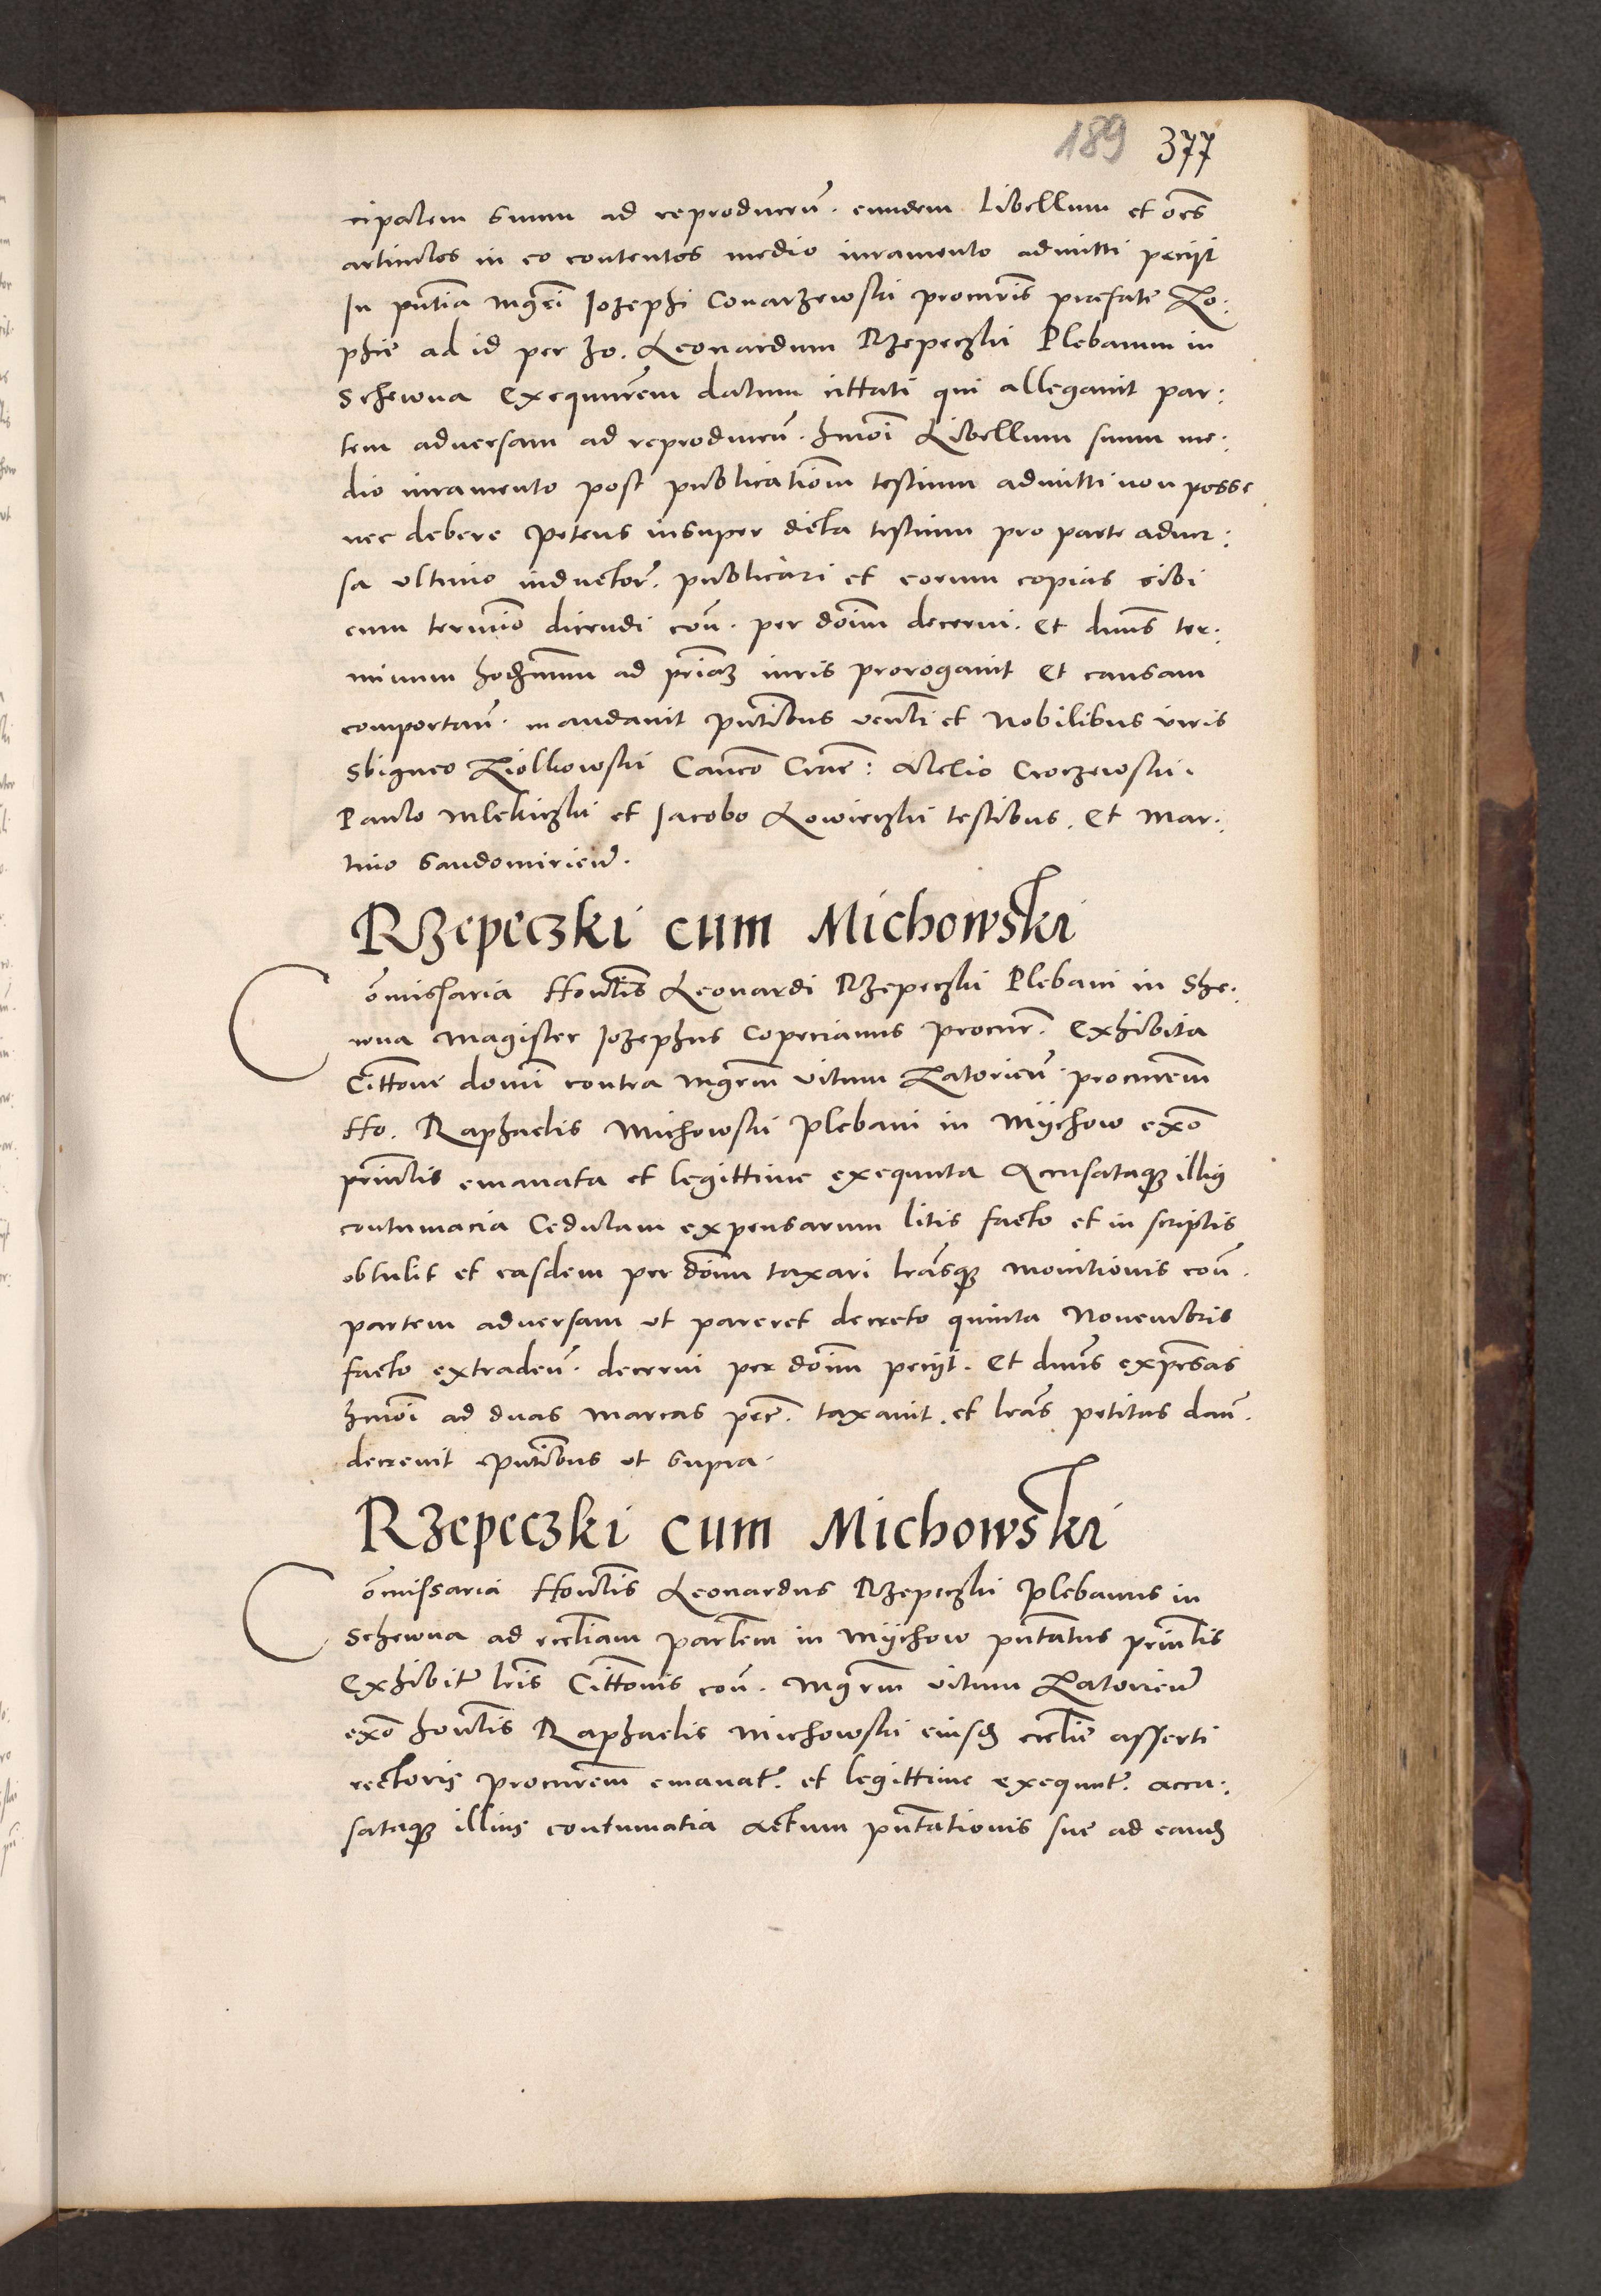 189 377
cipalem suum ad reproducen̄. eundem Libellum et oēs
articulos in eo contentos medio iuramento admitti peciit
In pn̄tia Mgr̄i Iozephi Conarzewski procur̄is praefate Zo:
phie ad id per ho. Leonardum Rzepeczki Plebanum in
Schewna Exequutrem datum cittati qui allegauit par:
tem aduersam ad reproducen̄. hmōi Libellum suum me:
dio iuramento post publicationem testium admitti non posse
nec debere Petens insuper dicta testium pro parte aduer:
sa ultimo inductor̄. publicari et eorum copias sibi
cum termino dicendi con̄. per dominū decerni. Et dnūs ter:
minum hodiernum ad primā iuris prorogauit Et causam
comportan̄. mandauit Pn̄tibus Venli et Nobilibus viris
Sbigneo Ziolkowski Canco Crac: Melio Croczewski.
Paulo Mlekiczki et Iacobo Lowieczki testibus. Et Mar:
tino Sandomirien̄.
Rzepeczki cum Michowski
Cōmissaria Honlis Leonardi Rzepeczki Plebani in She:
wna Magister Iozephus Copecianus Procur̄. Exhibita
Citt̄one domi contra Mgr̄m Vitum Zatorien̄. procur̄em
Ho. Raphaelis Michowski Plebani in Mychow exō
prin̄lis emanata et legittime exequuta Accusataqȝ illiꝰ
contumacia Cedulam expensarum litis facto et in scriptis
obtulit et easdem per dominū taxari lr̄asqȝ monitionis con̄.
partem aduersam ut pareret decreto quinta Nouembris
facto extraden̄. decerni per dominū peciit. Et dnūs expensas
hmōi ad duas marcas pec̄. taxauit. et lr̄as petitas dan̄.
decreuit Pn̄tibus ut supra.
Rzepeczki cum Michowski
Cōmissaria Honlis Leonardus Rzepeczki Plebanus in
Schewna ad eccliam partem in Mychow pn̄tatus prin̄lis
Exhibit̄ lr̄is Citt̄onis con̄. Mgr̄m Vitum Zatorien̄
exō honlis Raphaelis Michowski eiusd ecclie asserti
rectoris Procur̄em emanat̄. et legittime exequut̄. accu:
sataqȝ illius contumatia Actum pn̄tationis sue ad eand